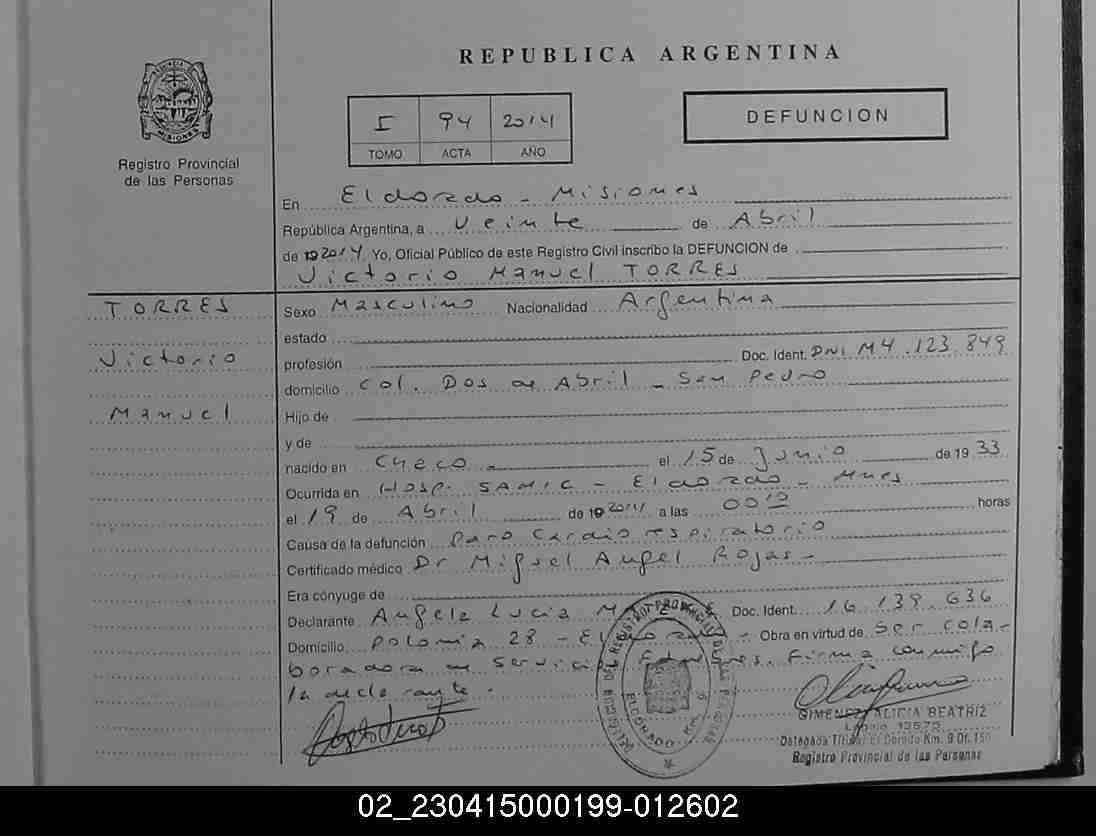 REPUBLICA ARGENTINA
Registro Provincial
de las Personas
I 94 2014
TOMO ACTA AÑO
DEFUNCION
En Eldorado - Misiones
República Argentina, a Veinte de Abril
de 192014 Yo, Oficial Público de este Registro Civil inscribo la DEFUNCION de
Victorio Manuel TORRES
TORRES
Victorio
Manuel
Sexo Masculino Nacionalidad Argentina
estado
profesión Doc. Ident. DNI M4.123.849
domicilio Col. Dos de Abril - San Pedro
Hijo de
y de
nacido en Checo el 15 de Junio de 1933
Ocurrida en Hosp. SAMIC - Eldorado - Mnes
el 19 de Abril de 192014 a las 00 10 horas
Causa de la defunción Paro Cardio respiratorio
Certificado médico Dr Miguel Angel Rojas -
Era cónyuge de
Declarante Angela Lucia Doc. Ident. 16.139.636
Domicilio Polonia 28 - Eldorado - Obra en virtud de Ser cola-
boradora de Servicio Firma conmigo
la declarante.
REGISTRO PROVINCIAL DE LAS PERSONAS
ELDORADO - KM. 9
GIMENEZ ALICIA BEATRIZ
Delegada Titular El Dorado Km. 9 Of. 150
Registro Provincial de las Personas
02_230415000199-012602